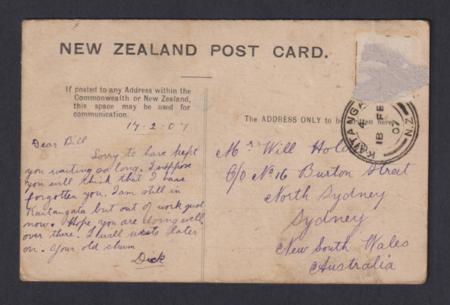 NEW ZEALAND POST CARD.
If posted to any Address within the
Commonwealth or New Zealand,
this space may be used for
communication.
The ADDRESS ONLY to be written here
KAITANGATA N.Z
A
18 FE
07
17-2-07
Dear Bill
Sorry to have kept
you waiting so long. I suppose
you will think that I have
forgotten you. I am still in
Kaitangata but out of work just
now. Hope you are doing well
over there. I will write later
on. Your old chum
Dick
Mr Will
C/o No 16 Burton Street
North Sydney
Sydney
New South Wales
Australia